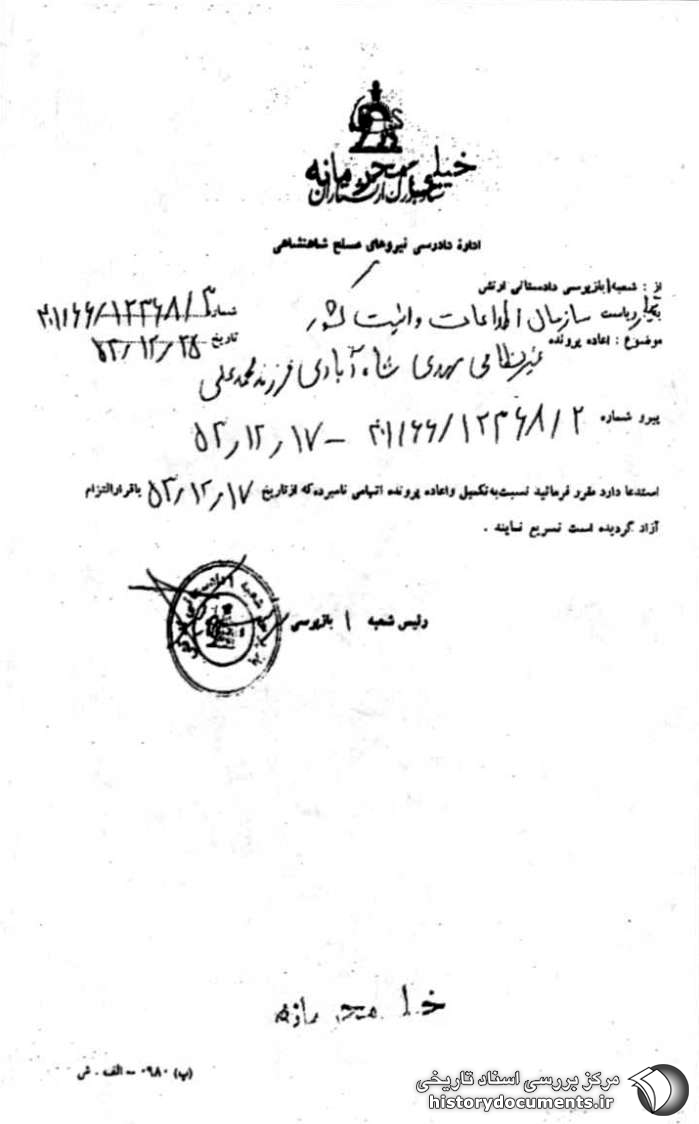 خیلی محرمانه
ستاد بزرگ ارتشتاران
اداره دادرسی نیروهای مسلح شاهنشاهی
از : شعبه ۱ بازپرسی دادستانی ارتش
بتیمار ریاست سازمان اطلاعات و امنیت کشور
شماره ۴۰۱/۶۶/۱۲۳۶۸/۳
تاریخ ۵۳/۱۲/۲۵
موضوع : اعاده پرونده غیرنظامی مهدی شاه آبادی فرزند محمدعلی
پیرو شماره ۴۰۱/۶۶/۱۲۳۶۸/۲ – ۵۳/۱۲/۱۷
استدعا دارد مقرر فرمائید نسبت به تکمیل و اعاده پرونده اتهامی نامبرده که از تاریخ ۵۳/۱۲/۱۷ باقرار التزام
آزاد گردیده است تسریع نمایند .
رئیس شعبه ۱ بازپرسی
خیلی محرمانه
(پ) ۰۹۸۰ – الف . ش
مرکز بررسی اسناد تاریخی
historydocuments.ir